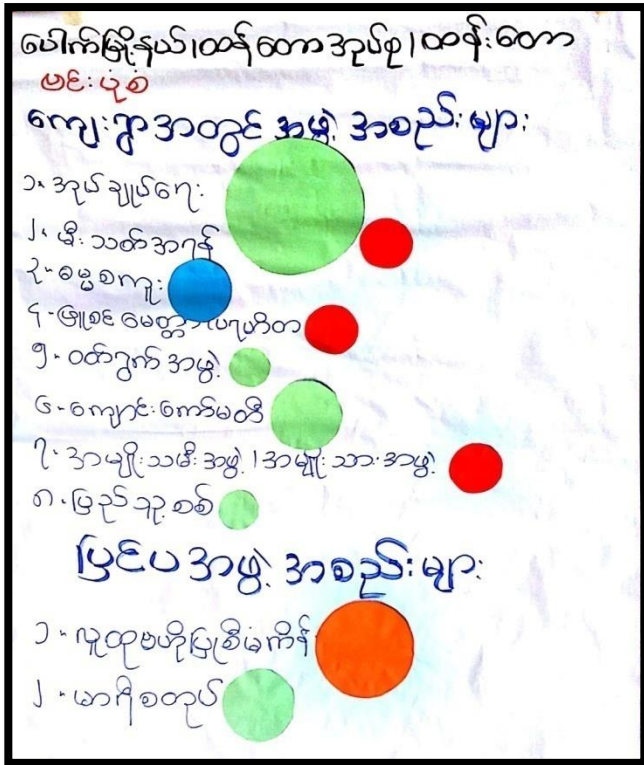 ပေါက်မြို့နယ်၊ထန်တောအုပ်စု၊ထန်းတော
ဗင်းပုံစံ
ကျေးရွာအတွင်အဖွဲ့အစည်းများ
၁။ အုပ်ချုပ်ရေး
၂။ မီးသတ်အရန်
၃-ဓမ္မစကူး
၄-ဖြူစင်မေတ္တာပရဟိတ
၅-ဝတ်ရွက်အဖွဲ့
၆-ကျောင်းကော်မတီ
၇-အမျိုးသမီးအဖွဲ့၊အမျိုးသားအဖွဲ့
၈-ပြည်သူ့စစ်
ပြင်ပအဖွဲ့အစည်းများ
၁-လူထုဗဟိုပြုစီမံကိန်း
၂-မာရီစတုပ်